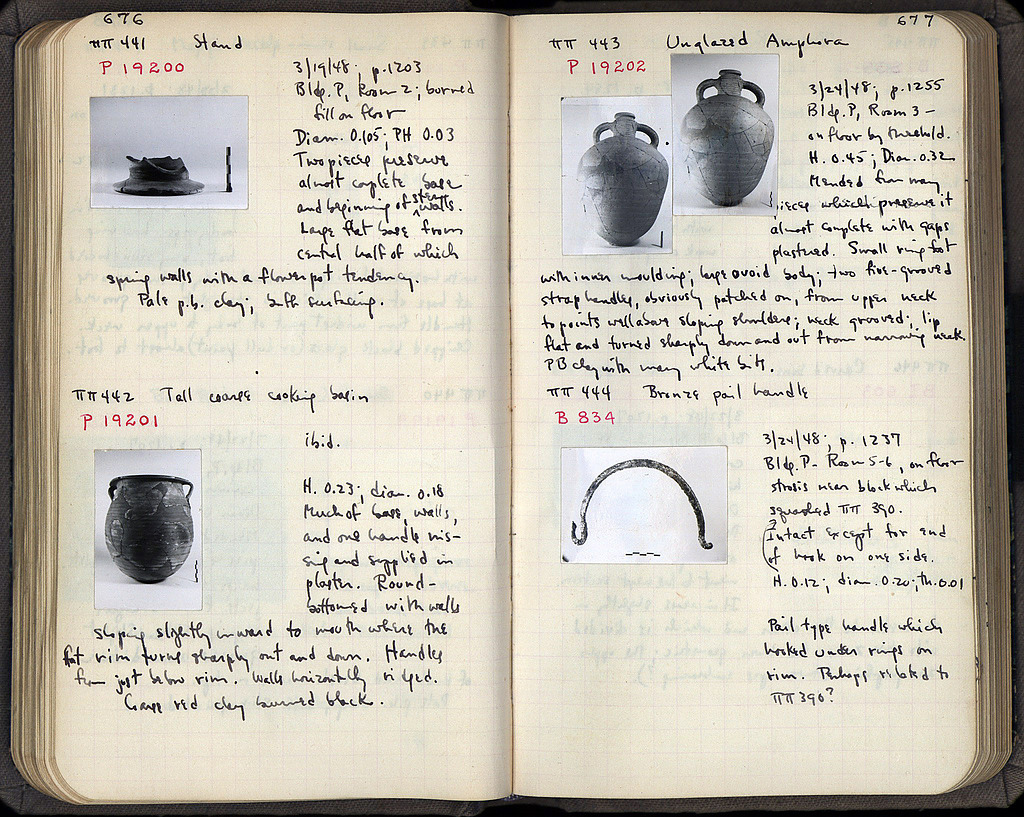 676
ΠΠ 441 Stand
P 19200
3/19/48; p.1203
Bldg. P, Room 2; burned
fill on floor
Diam. 0.105; PH 0.03
Two pieces preserve
almost complete base
and beginning of steep walls.
Large flat base from
central half of which
spring walls with a flowerpot tendency.
Pale p.b. clay; buff surfacing.
ΠΠ 442 Tall coarse cooking basin
P 19201
ibid.
H. 0.23; diam. 0.18
Much of base, walls,
and one handle mis-
sing and supplied in
plaster. Round-
bottomed with walls
sloping slightly inward to mouth where the
flat rim turns sharply out and down. Handles
from just below rim. Walls horizontally ridged.
Coarse red clay burned black.
677
ΠΠ 443 Unglazed Amphora
P 19202
3/24/48; p.1255
Bldg. P, Room 3 -
on floor by threshold.
H. 0.45; Diam. 0.32
Mended from many
pieces which preserve it
almost complete with gaps
plastered. Small ring foot
with inner moulding; large ovoid body; two five-grooved
strap handles, obviously patched on, from upper neck
to points well above sloping shoulders; neck grooved; lip
flat and turned sharply down and out from narrowing neck.
PB clay with many white bits.
ΠΠ 444 Bronze pail handle
B 834
3/24/48; p. 1237
Bldg. P - Room 5-6, on floor
strosis near block which
squashed ΠΠ 390.
Intact except for end
of hook on one side.
H. 0.12; diam. 0.20; th. 0.01
Pail type handle which
hooked under rings on
rim. Perhaps related to
ΠΠ 390?